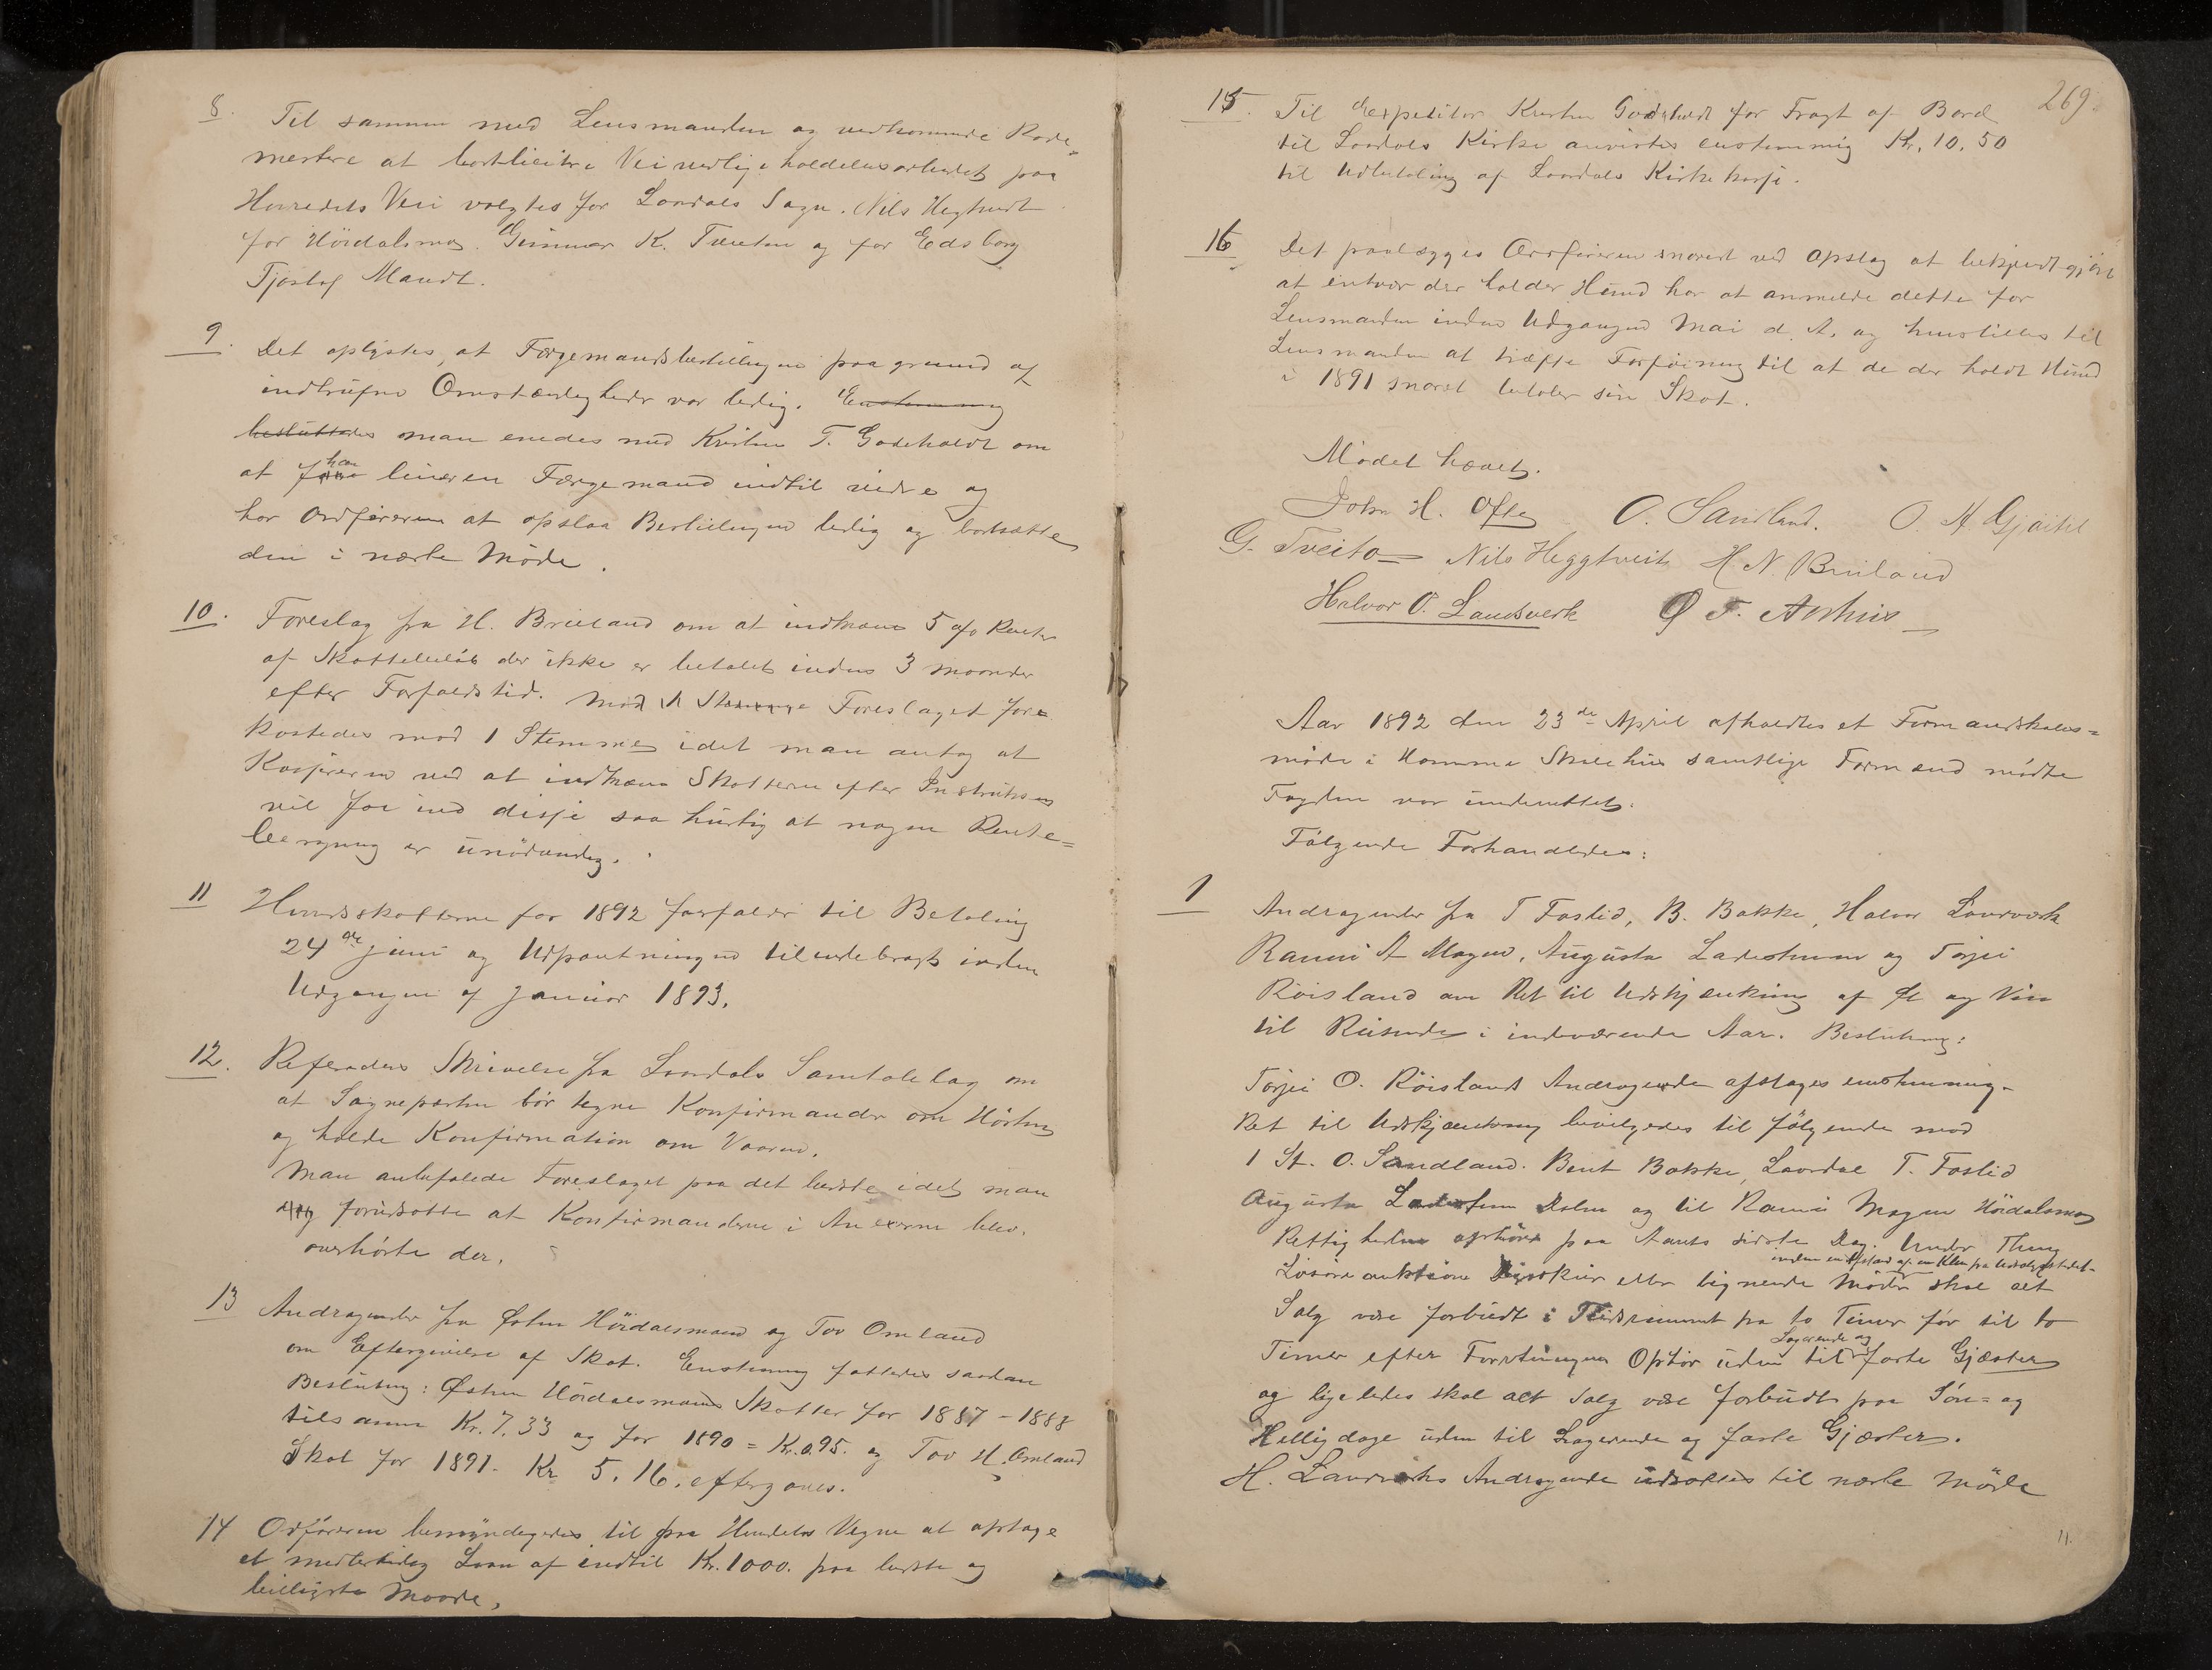 8. Til sammen med Lensmanden og vedkommende Rode=
mestere at bortlicitere Veivedligeholdelsesarbeidet paa
Herredets Veie valgtes for Laardals Sogn. Nils Hegtveit
for Høidalsmo. Gunnar K. Tveiten og for Eidsborg
Tjøstof Mandt.
9. Det oplystes, at Færgemandsbestillingen paa grund af
indtrufne Omstændigheder var ledig. Enstemmig
besluttedes man enedes med Kristen T. Godeholdt om
at han leier en Færgemand indtil videre og
har Ordføreren at opslaa Bestillingen ledig og bortsætte
den i næste Møde.
10. Foreslag fra H. Bruland om at indkræve 5 o/o Renter
af Skattebeløb der ikke er betalet inden 3 maaneder
efter Forfaldstid. Mod 1 Stemme Foreslaget for=
kastedes mod 1 Stemme idet man antog at
Kassereren ved at indkræve Skatterne efter Instruksen
vil faa ind disse saa hurtig at nogen Rente=
beregning er unødvendig.
11 Hundeskatterne for 1892 forfalder til Betaling
24de juni og Udpantningen tilendebragt inden
Udgangen af Januar 1893.
12. Refereredes Skrivelse fra Laardals Samtalelag om
at Sognepresten bør tegne Konfirmander om Høsten
og holde Konfirmation om Vaaren.
Man anbefalede Foreslaget paa det bedste idet man
dog forudsatte at Konfirmanderne i Anexerne blev
overhørte der.
13 Andragender fra Østen Høidalsmoen og Tov Omland
om Eftergivelse af Skat. Enstemmig fattedes saadan
Beslutning: Østen Høidalsmoens Skatter for 1887-1888
tilsammen Kr. 7.33 og for 1890 = Kr. 0.95. og Tov H. Omland
Skat for 1891. Kr 5.16. eftergaves.
14 Ordføreren bemyndigedes til paa Herredets Vegne at optage
et midlertidig Laan af indtil Kr. 1000. paa bedste og
billigste Maade.
269.
15. Til Expeditør Kristen Godeholdt for Fragt af Bord
til Laardals Kirke anvistes enstemmig Kr. 10.50
til Udbetaling af Laardals Kirkekasse.
16 Det paalægges Ordføreren snarest ved Opslag at bekjendtgjøre
at enhver der holder Hund har at anmelde dette for
Lensmanden inden Udgangen Mai d. A. og henstilles til
Lensmanden at træffe Forføining til at de der holdt Hund
i 1891 snarest betaler sin Skat.
Mødet hævet.
John H. Ofte O. Sandland. O. A. Gjøitil
G. Tveito Nils Heggtveit H N Bruland
Halvor O. Landsverk Ø T. Aarhus
Aar 1892 den 23de April afholdtes et Formandskabs=
møde i Homme Skolehus samtlige Formænd mødte
Fogden var underrettet.
Følgende Forhandledes:
1 Andragender fra T Foslid, B. Bakke, Halvor Laurvæk
Ranni A Mogen, Augusta Ladestuen og Torjei
Røisland om Ret til Udskjænkning af Øl og Vin
til Reisende i indeværende Aar. Beslutning:
Torjei O. Røislands Andragende afslages enstemmig.
Ret til Udskjænkning bevilgedes til følgende mod
1 St. O. Sandland. Bent Bakke, Laardal T. Foslid
Augusta Ladestuen Dalen og til Ranni Mogen Høidalsmo
Rettigheden ophører paa Aarets sidste Dag. Under Thing
inden en Afstand af en Klm fra Udsalgsstedet
Løsøreauktion Dyrskuer eller lignende Møder skal alt
Salg være forbudt i Tidsrummet fra to Timer før til to
Timer efter Forretningens Ophør uden til Logerende og faste Gjæster
og ligeledes skal alt Salg være forbudt paa Søn= og
Helligdage uden til Logerende og faste Gjæster.
H. Laurvæks Andragende udsattes til næste Møde